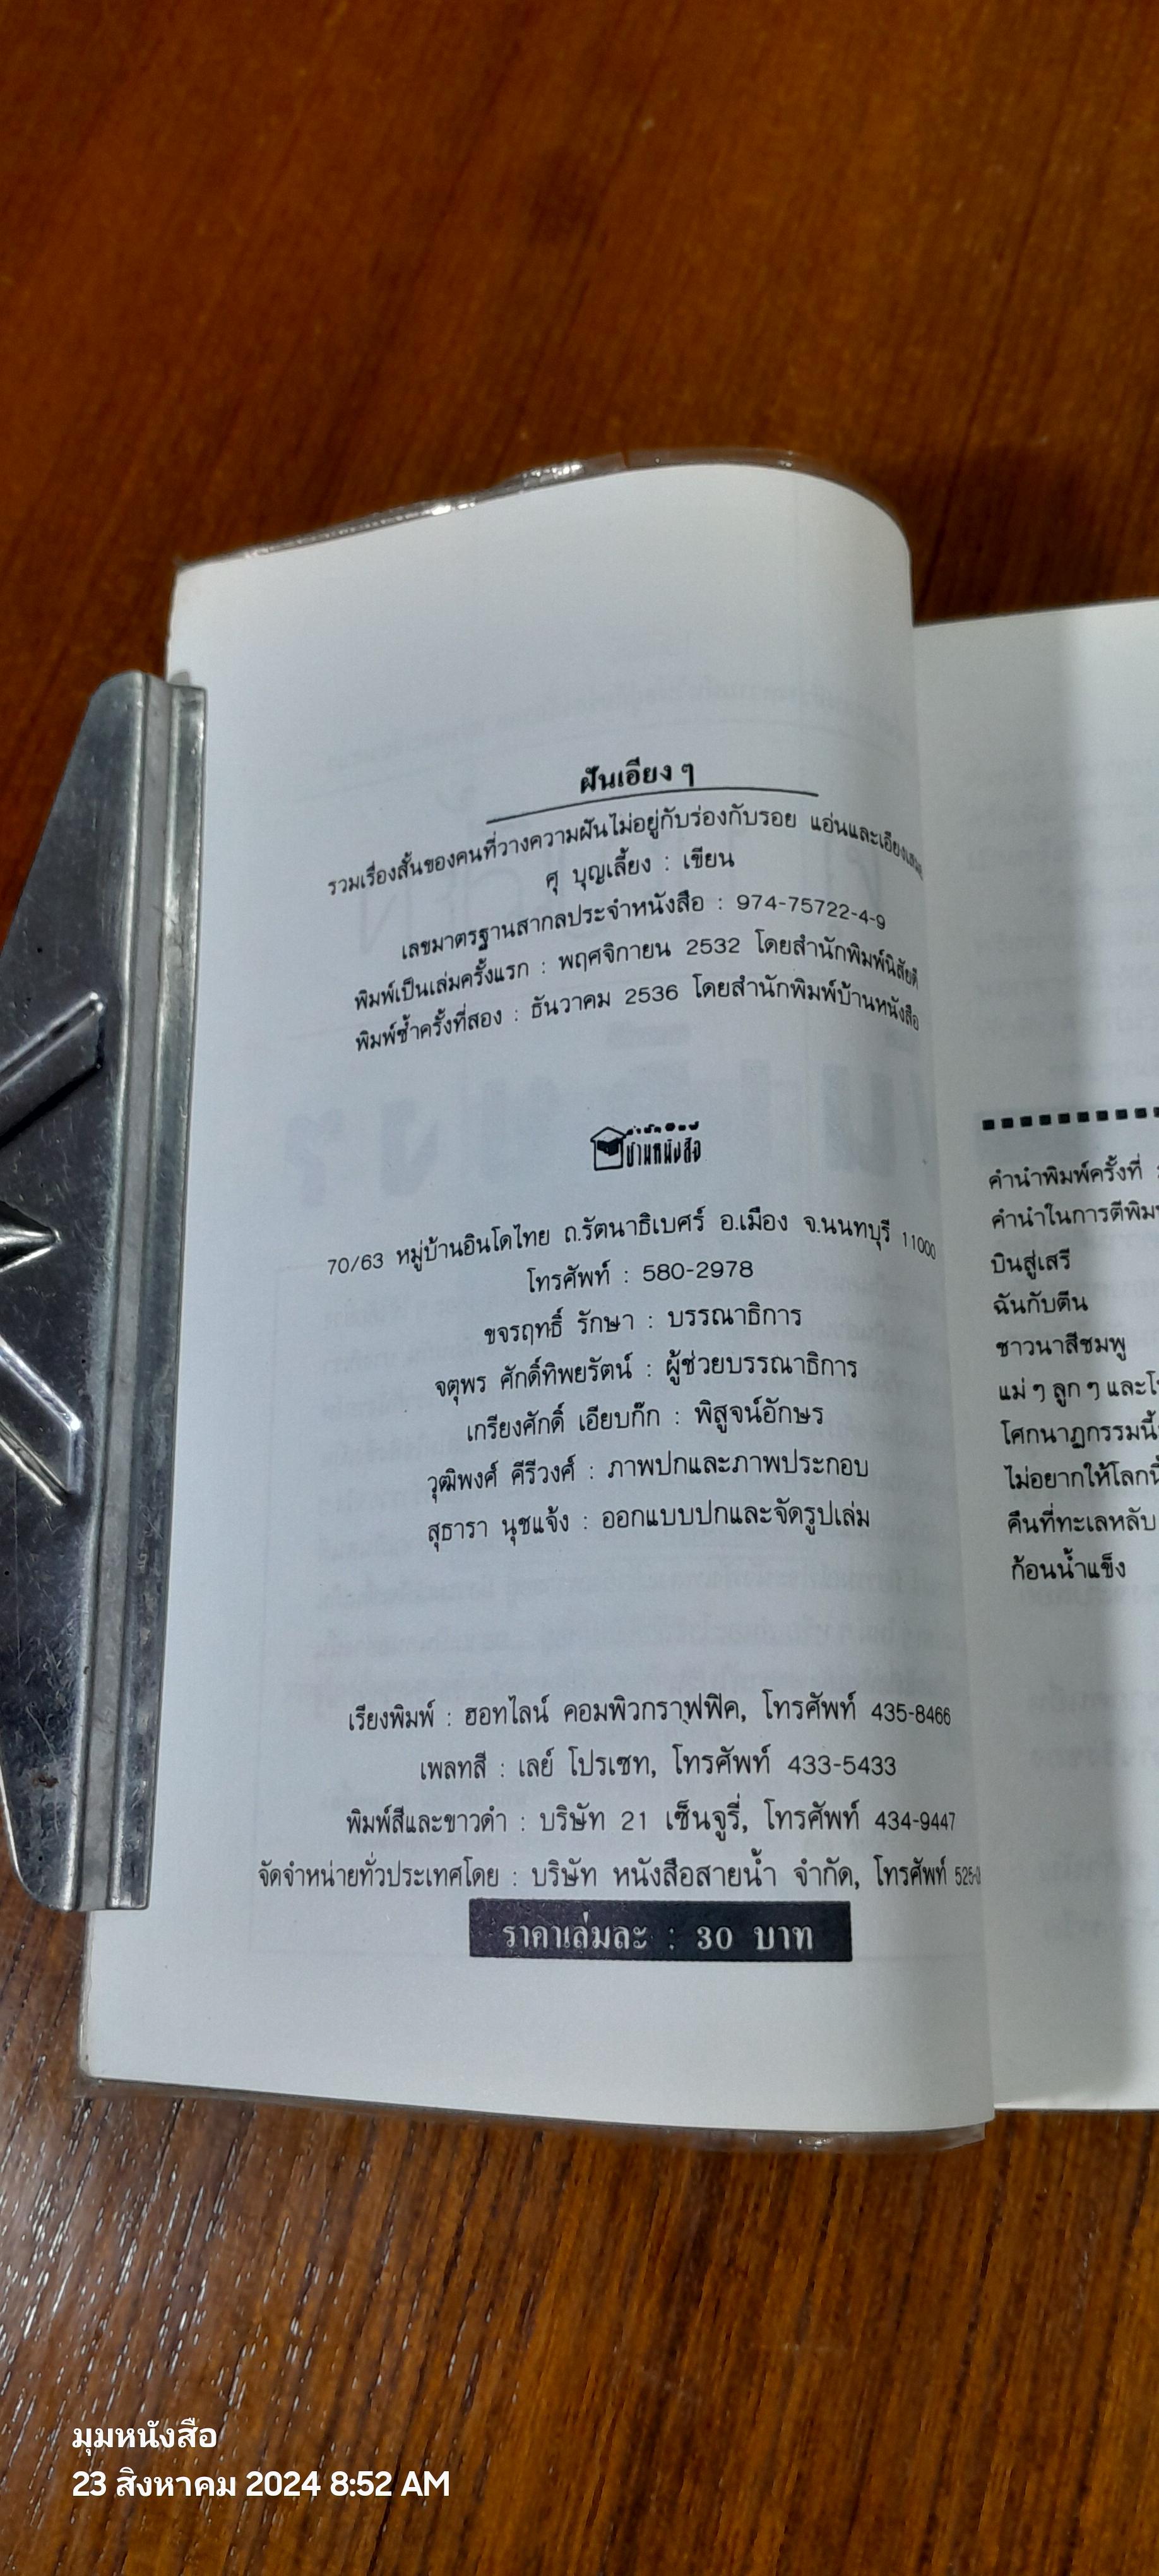 ฝันเอียง ๆ
รวมเรื่องสั้นของคนที่วางความฝันไม่อยู่กับร่องกับรอย แอ่นและเอียง
ศุ บุญเลี้ยง : เขียน
เลขมาตรฐานสากลประจำหนังสือ : 974-75722-4-9
พิมพ์เป็นเล่มครั้งแรก : พฤศจิกายน 2532 โดยสำนักพิมพ์นิสัยดี
พิมพ์ซ้ำครั้งที่สอง : ธันวาคม 2536 โดยสำนักพิมพ์บ้านหนังสือ
สำนักพิมพ์
บ้านหนังสือ
70/63 หมู่บ้านอินโดไทย ถ.รัตนาธิเบศร์ อ.เมือง จ.นนทบุรี 11000
โทรศัพท์ : 580-2978
ขจรฤทธิ์ รักษา : บรรณาธิการ
จตุพร ศักดิ์ทิพยรัตน์ : ผู้ช่วยบรรณาธิการ
เกรียงศักดิ์ เอียบก๊ก : พิสูจน์อักษร
วุฒิพงศ์ คีรีวงศ์ : ภาพปกและภาพประกอบ
สุธารา นุชแจ้ง : ออกแบบปกและจัดรูปเล่ม
เรียงพิมพ์ : ฮอทไลน์ คอมพิวกราฟฟิค, โทรศัพท์ 435-8466
เพลทสี : เลย์ โปรเซท, โทรศัพท์ 433-5433
พิมพ์สีและขาวดำ : บริษัท 21 เซ็นจูรี่, โทรศัพท์ 434-9447
จัดจำหน่ายทั่วประเทศโดย : บริษัท หนังสือสายน้ำ จำกัด, โทรศัพท์
ราคาเล่มละ : 30 บาท
คำนำพิมพ์ครั้งที่
คำนำในการตีพิมพ์
บินสู่เสรี
ฉันกับตีน
ชาวนาสีชมพู
แม่ ๆ ลูก ๆ และ
โศกนาฏกรรมนี้
ไม่อยากให้โลกนี้
คืนที่ทะเลหลับ
ก้อนน้ำแข็ง
มุมหนังสือ
23 สิงหาคม 2024 8:52 AM